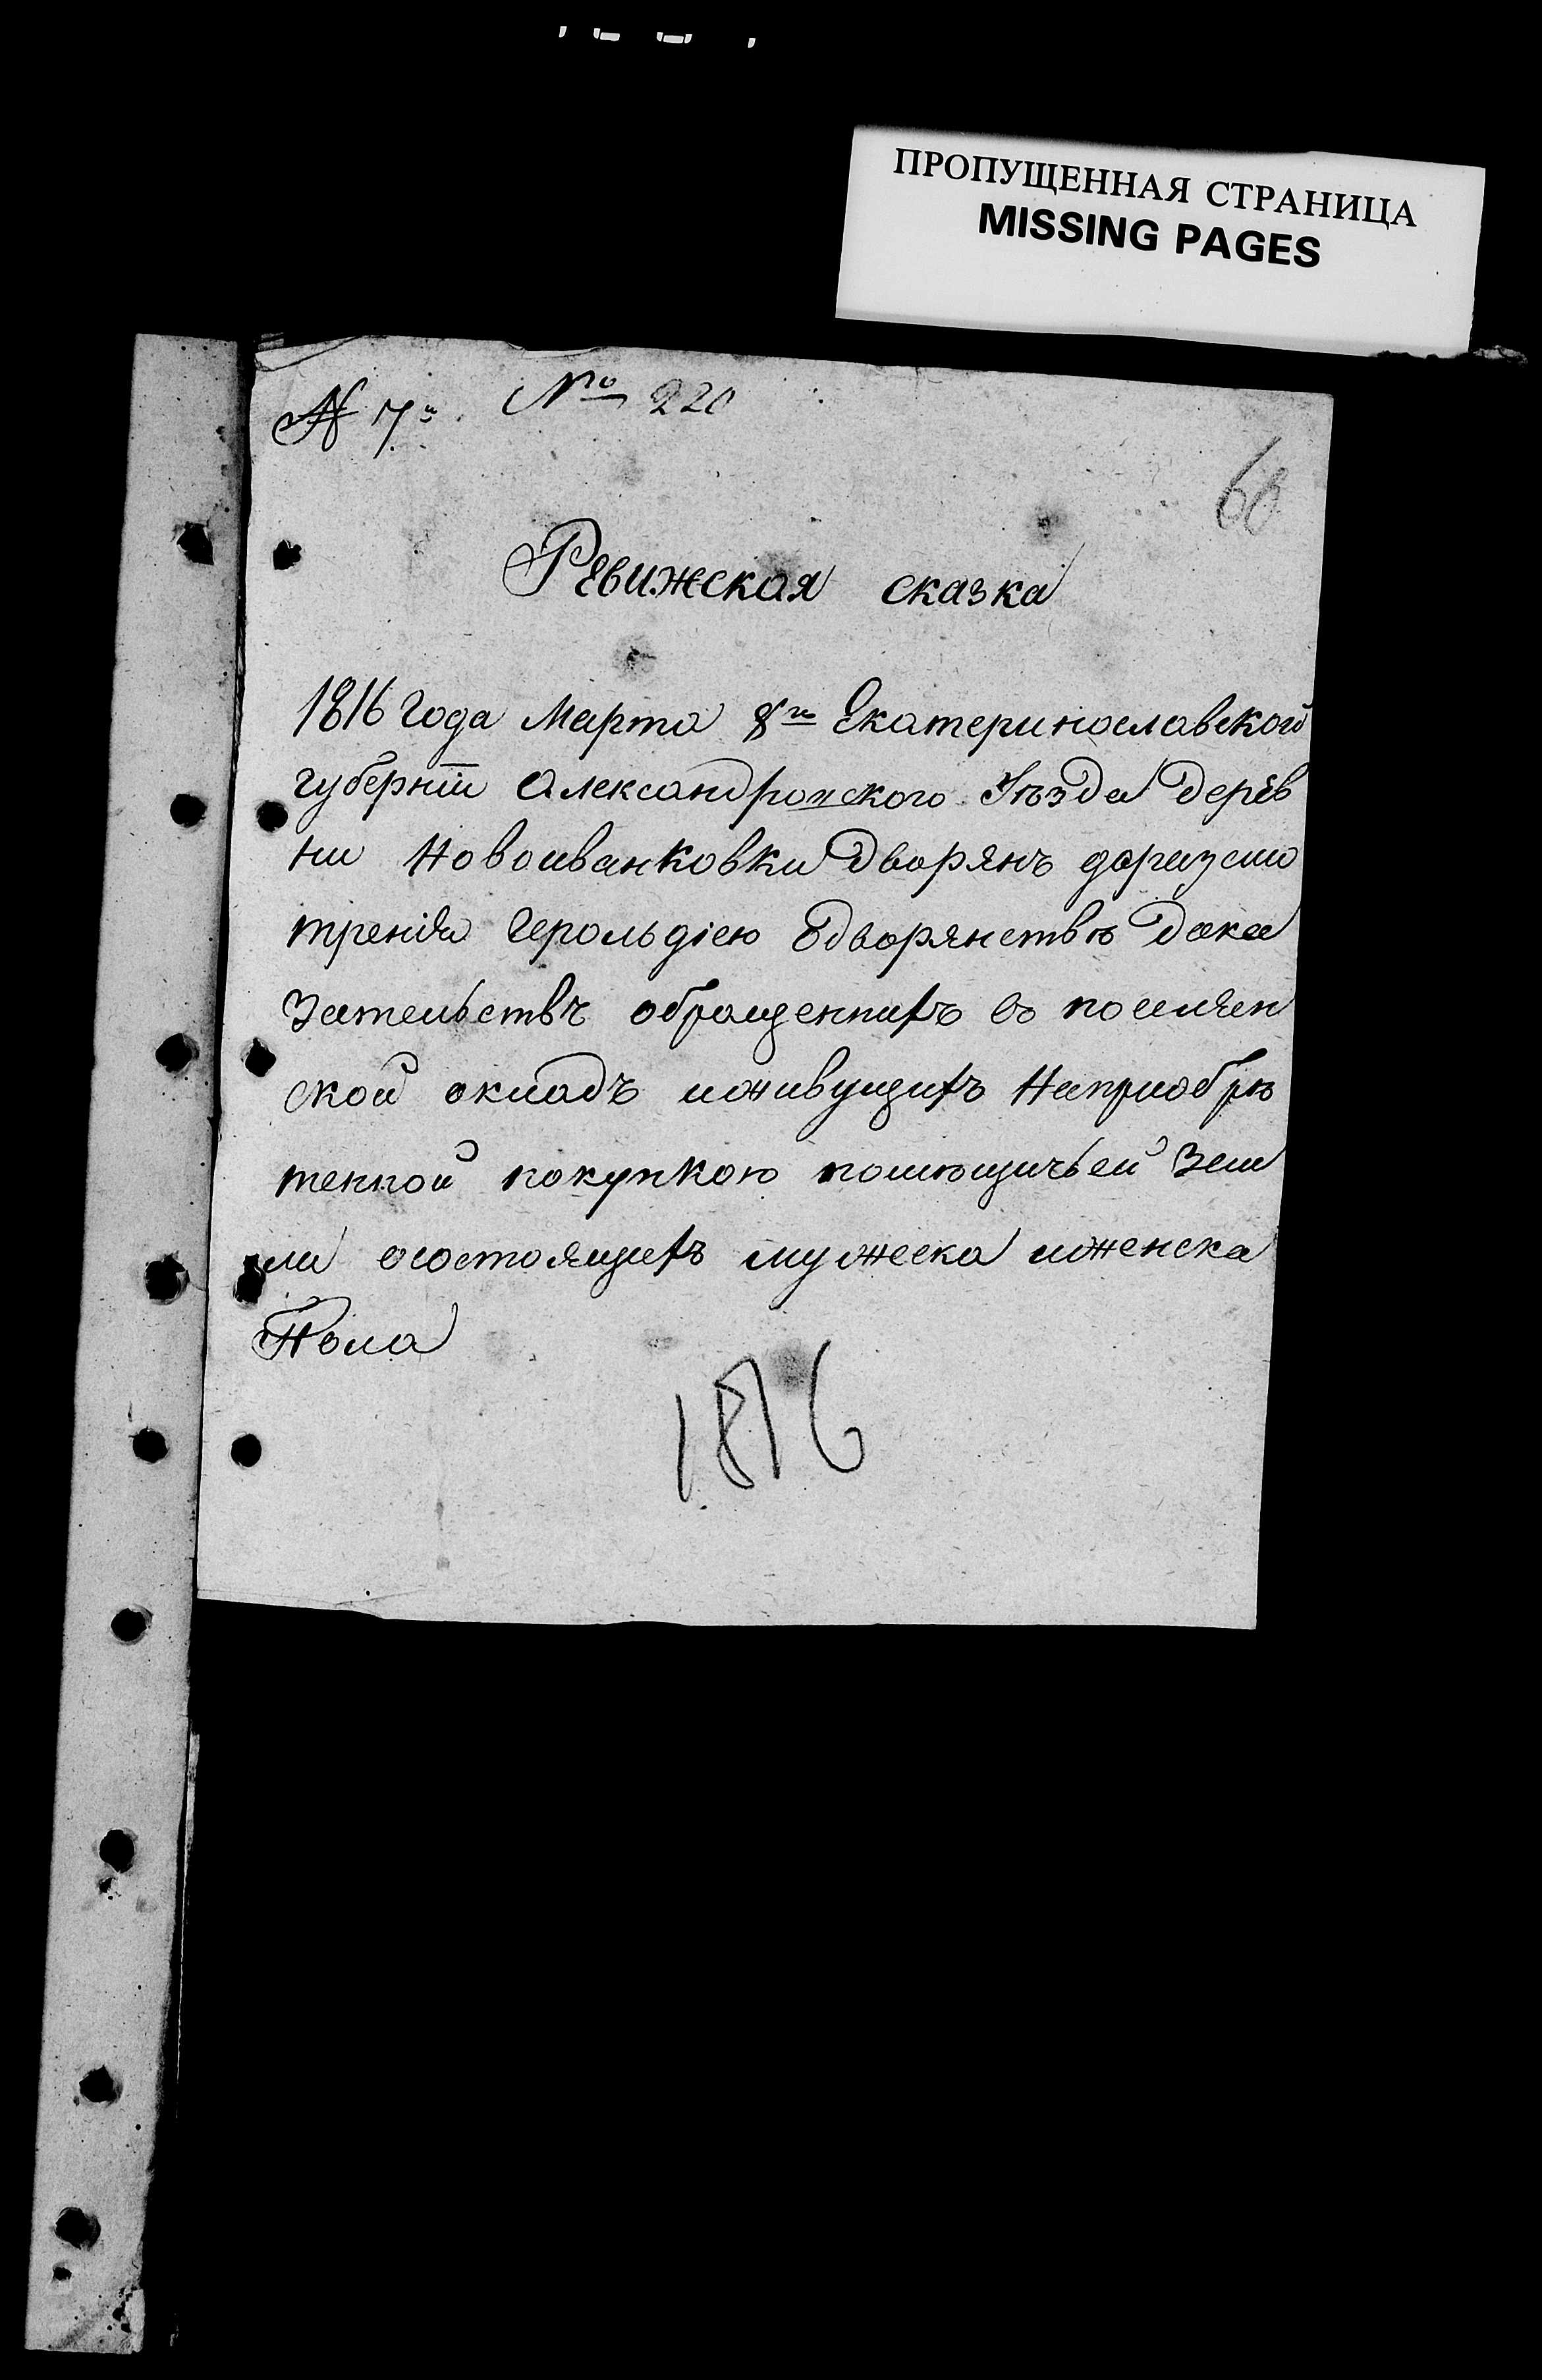 ПРОПУЩЕННАЯ СТРАНИЦА
MISSING PAGES
N 7й. No 220
60
Ревижская сказка
1816 Года Марта 8го Екатеринославской
губернїи Александровского Уѣзда Дерев
ни Новоиванковки Дворянъ доразсмо
тренїя Герольдїею Одворянствѣ Дока
Зательствъ обращеннихъ въ поселян
ской окладъ иживущихъ Наприобрѣ
тенной покупкою помѣщичьей Зем
ли осостоящихъ мужеска иженска
Пола
1816